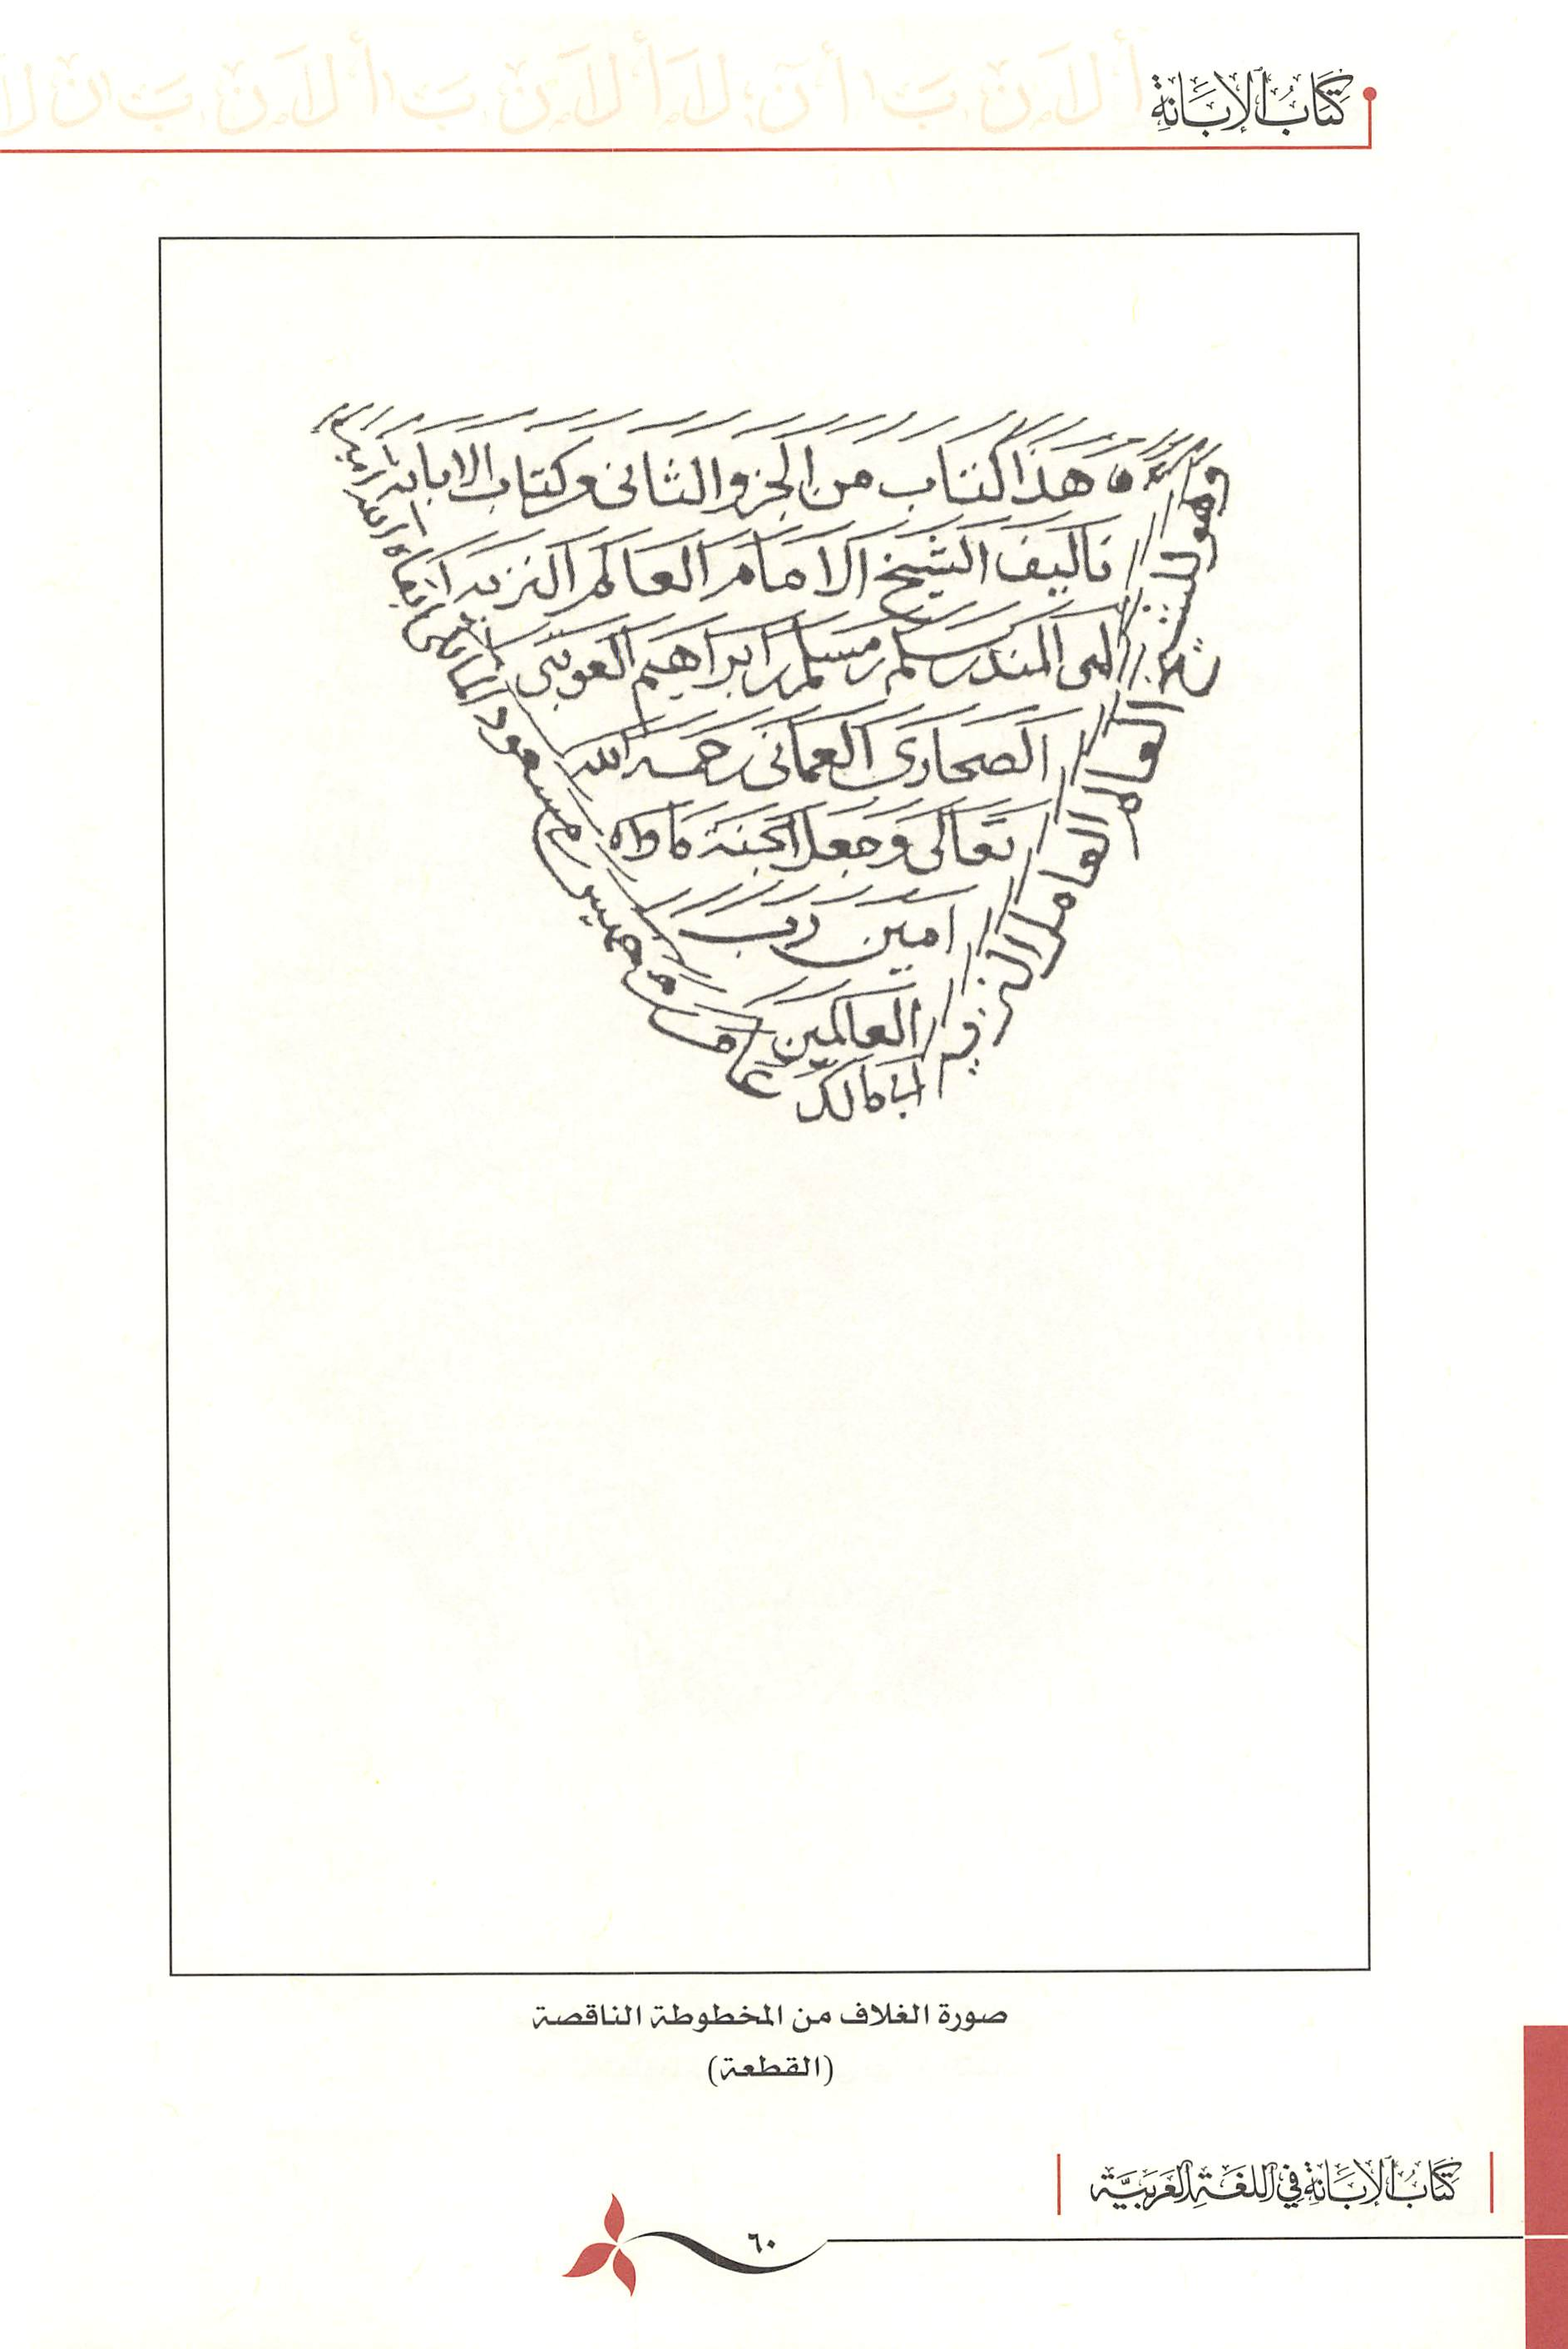 كِتَابُ الإِبَانَةِ
هذا الكتاب من الجزو الثاني من كتاب الابانه
تاليف الشيخ الامام العالم النزيه
ابى المنذر سلمة بن مسلم بن ابراهيم العوتبى
الصحارى العمانى رحمه الله
تعالى وجعل الجنة ماواه
امين رب
العالمين
وهو للشيخ
الثقة العالم العامل النزيه
مسعود
صورة الغلاف من المخطوطة الناقصة
(القطعة)
كِتَابُ الإِبَانَةِ فِي اللُّغَةِ العَرَبِيَّةِ
٦٠